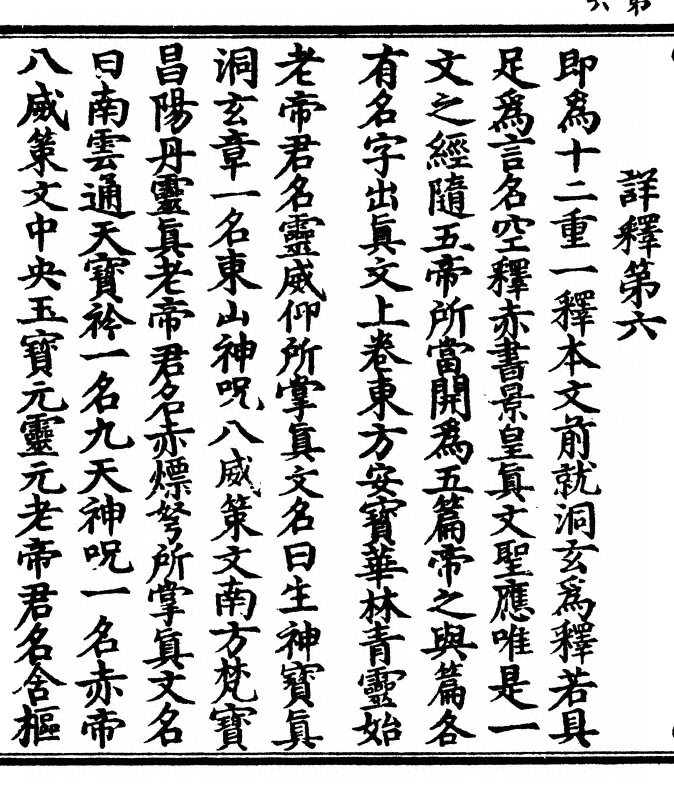 詳釋第六
即爲十二重一釋本文前就洞玄爲釋若具
足爲言名空釋赤書景皇眞文聖應唯是一
文之經隨五帝所當開爲五篇帝之與篇各
有名字出眞文上卷東方安寶華林青靈始
老帝君名靈威仰所掌眞文名曰生神寶眞
洞玄章一名東山神呪八威策文南方梵寶
昌陽丹靈眞老帝君名赤熛弩所掌眞文名
曰南雲通天寶衿一名九天神呪一名赤帝
八威策文中央玉寶元靈元老帝君名含樞